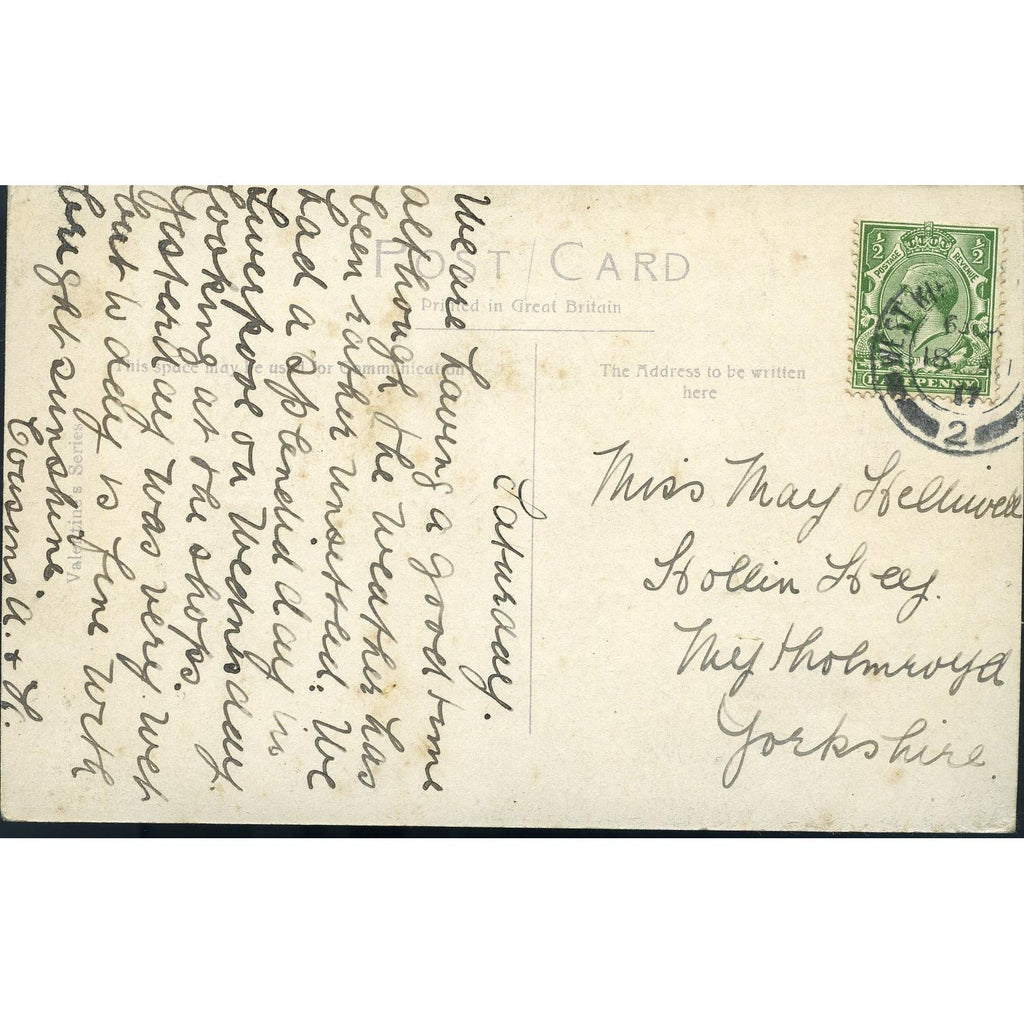 POST CARD
Printed in Great Britain
This space may be used for Communication
The Address to be written
here
Valentine's Series
Saturday.
We are having a good time
although the weather has
been rather unsettled. We
had a splendid day in
Liverpool on Wednesday
looking at the shops.
Yesterday was very wet
but to day is fine with
bright sunshine.
Cousins. A. & H.
Miss May Helliwell
Hollin Hey.
Mytholmroyd
Yorkshire.
1/2
1/2
POSTAGE
REVENUE
PENNY
WEST
18
17
2